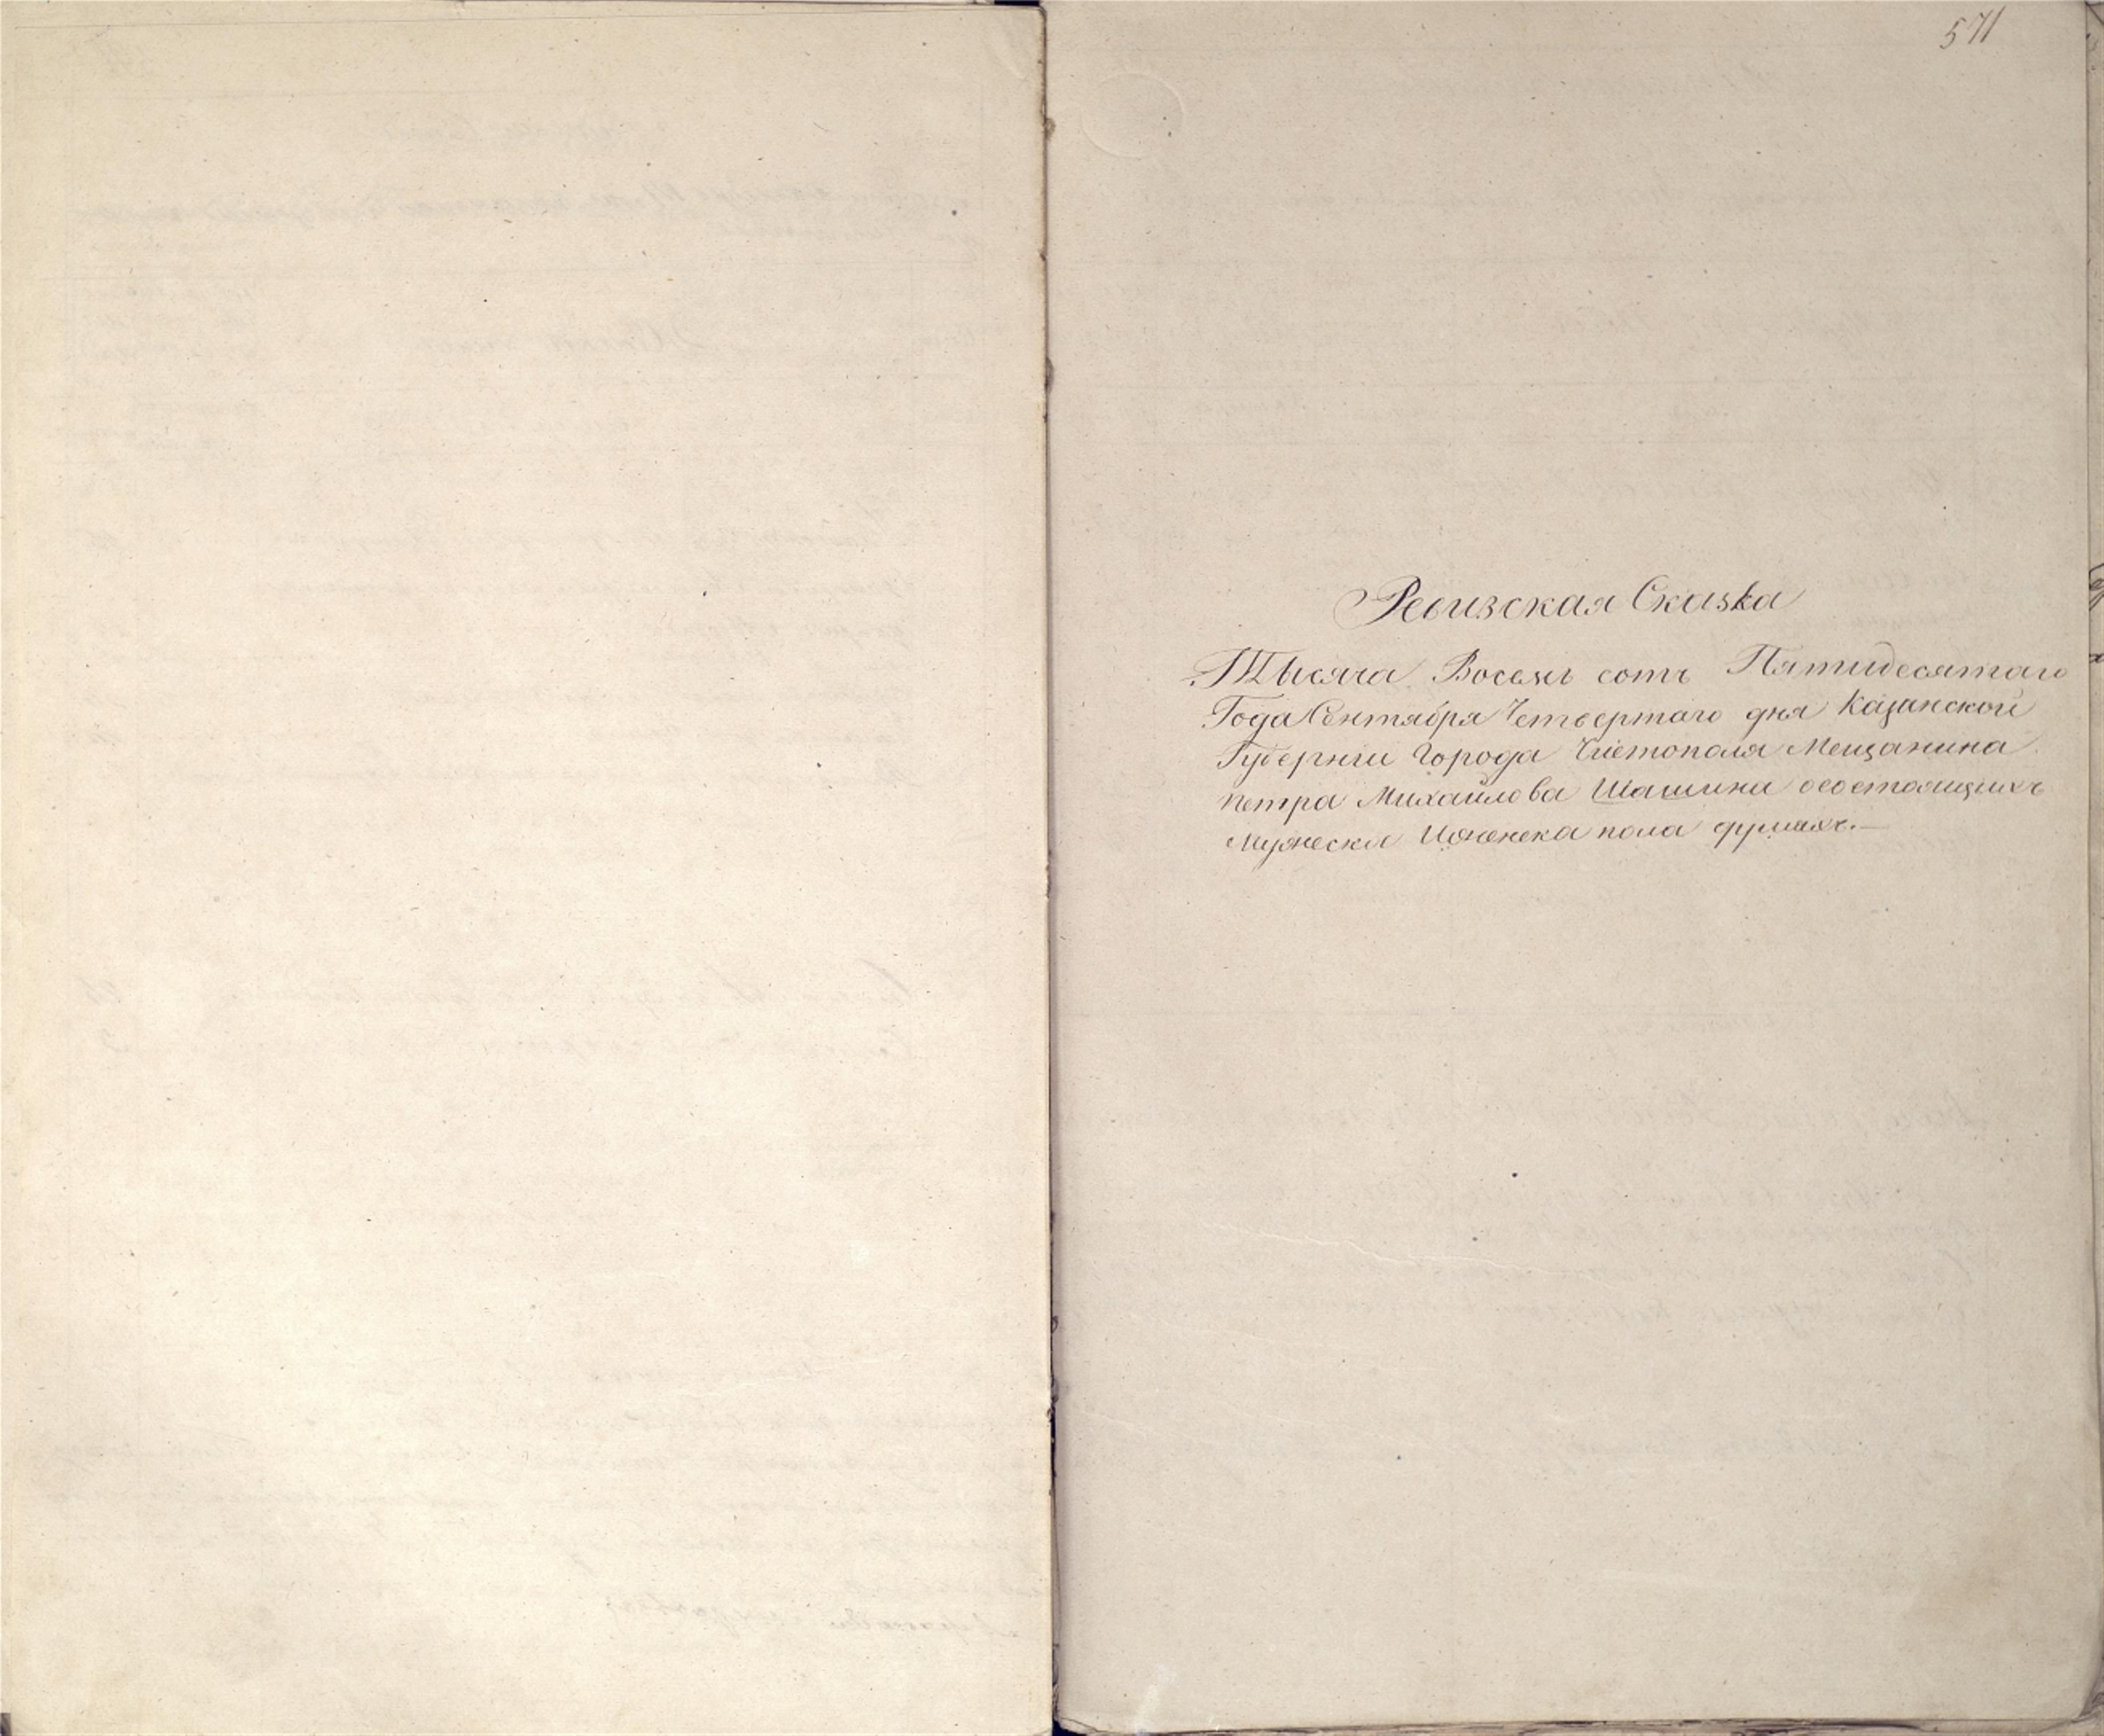 571
Ревизская Сказка
Тысяча Восемь сотъ Пятидесятаго
Года Сентября Четвертаго дня Казанской
Губерніи Города Чистополя Мещанина
петра Михайлова Шашина осостоящихъ
Мужеска Иженска пола душахъ.—